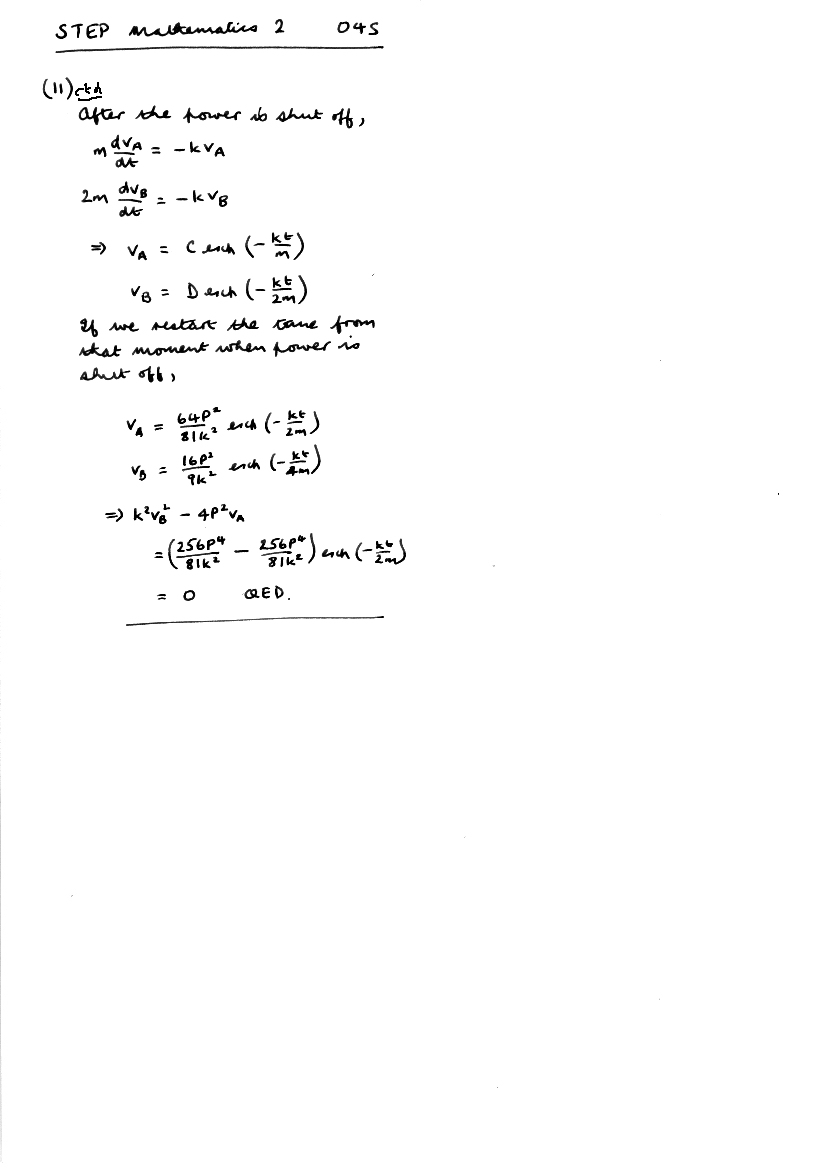 STEP Mathematics 2 04S
(11) ctd
After the power is shut off,
m dvA/dt = -kvA
2m dvB/dt = -kvB
⇒ vA = C exp (-kt/m)
vB = D exp (-kt/2m)
If we restart the time from
that moment when power is
shut off,
vA = 64P²/81k² exp (-kt/2m)
vB = 16P²/9k² exp (-kt/4m)
⇒ k²vB² - 4P²vA
= (256P⁴/81k² - 256P⁴/81k²) exp (-kt/2m)
= 0 QED.